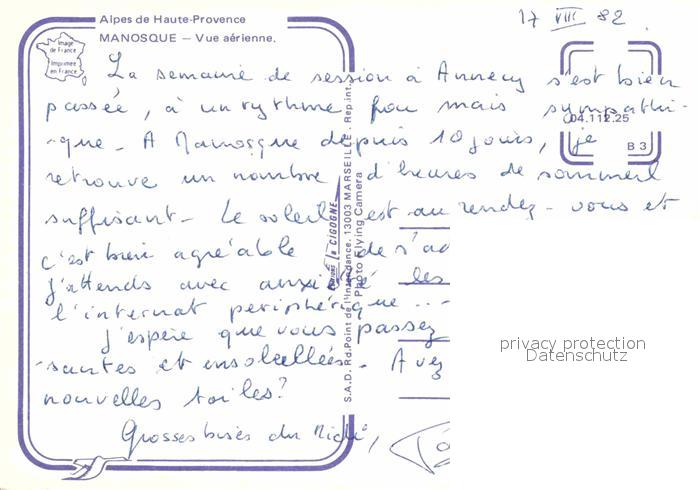 Alpes de Haute-Provence
MANOSQUE – Vue aérienne.
17 VIII 82
Image
de France
Imprimée
en France
La semaine de session à Annecy s'est bien
passée, à un rythme fou mais sympathi-
-que. A Manosque depuis 10 jours, je
retrouve un nombre d'heures de sommeil
suffisant. Le soleil est au rendez-vous et
c'est bien agréable de s'ad
J'attends avec anxiété les
l'internat périphérique...
J'espère que vous passez
-santes et ensoleillées. Avez
nouvelles toiles?
Grosses bises du Midi,
04.112.25
B 3
S.A.D. Rd.Point de l'Intendance. 13003 MARSEILLE - Rep.int.
Photo Flying Camera
la CIGOGNE
privacy protection
Datenschutz